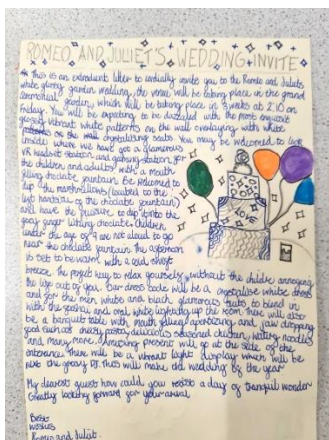 ROMEO AND JULIET'S WEDDING INVITE
This is an extrodient letter to cordially invite you to the Romeo and Juliets
white glossy garden wedding, the venue will be taking place in the grand
garden, which will be taking place in 3 weeks at 2:10 on
Friday. You will be expecting to be dazzled with the most exquisit
gorgest vibrant white patterns on the wall overlaying with white
crystalizing seats. You may be welcomed to
inside where we have got a glamorous
VR headset station and gaming station for
the children, and adults with a mouth
filling choclate fountain. Be welcomed to
dip the marshmallows (
last of the choclate fountain)
and have the pleasure to dip it into the
ginger choclate. Children
under the age of 9 are not aloud to go
near the choclate fountain. The afternoon
is bet to be warm with a cold
breeze. The perfect way to relax yourself, without the childre annoying
the life out of you. Our dress code will be a crystalise white dress
and for the men white and black glamorous suits to blend in
with the and white lighting up the room. There will also
be a banquite table with mouth filling appetizing and jaw dropping
food such as: cheesy pasta, delicious seasoned chicken, watery noodles
and many more. Amazing present will go at the side of the
enterence. There will be a vibrant light display which will be
near the groovy DJ. This will make did wedding of the year
My dearest guest how could you resist a day of tranquil wonder
Greatly looking forward for your arrival
Best
wishes
Romeo and Juliet.
FOR
LOVE